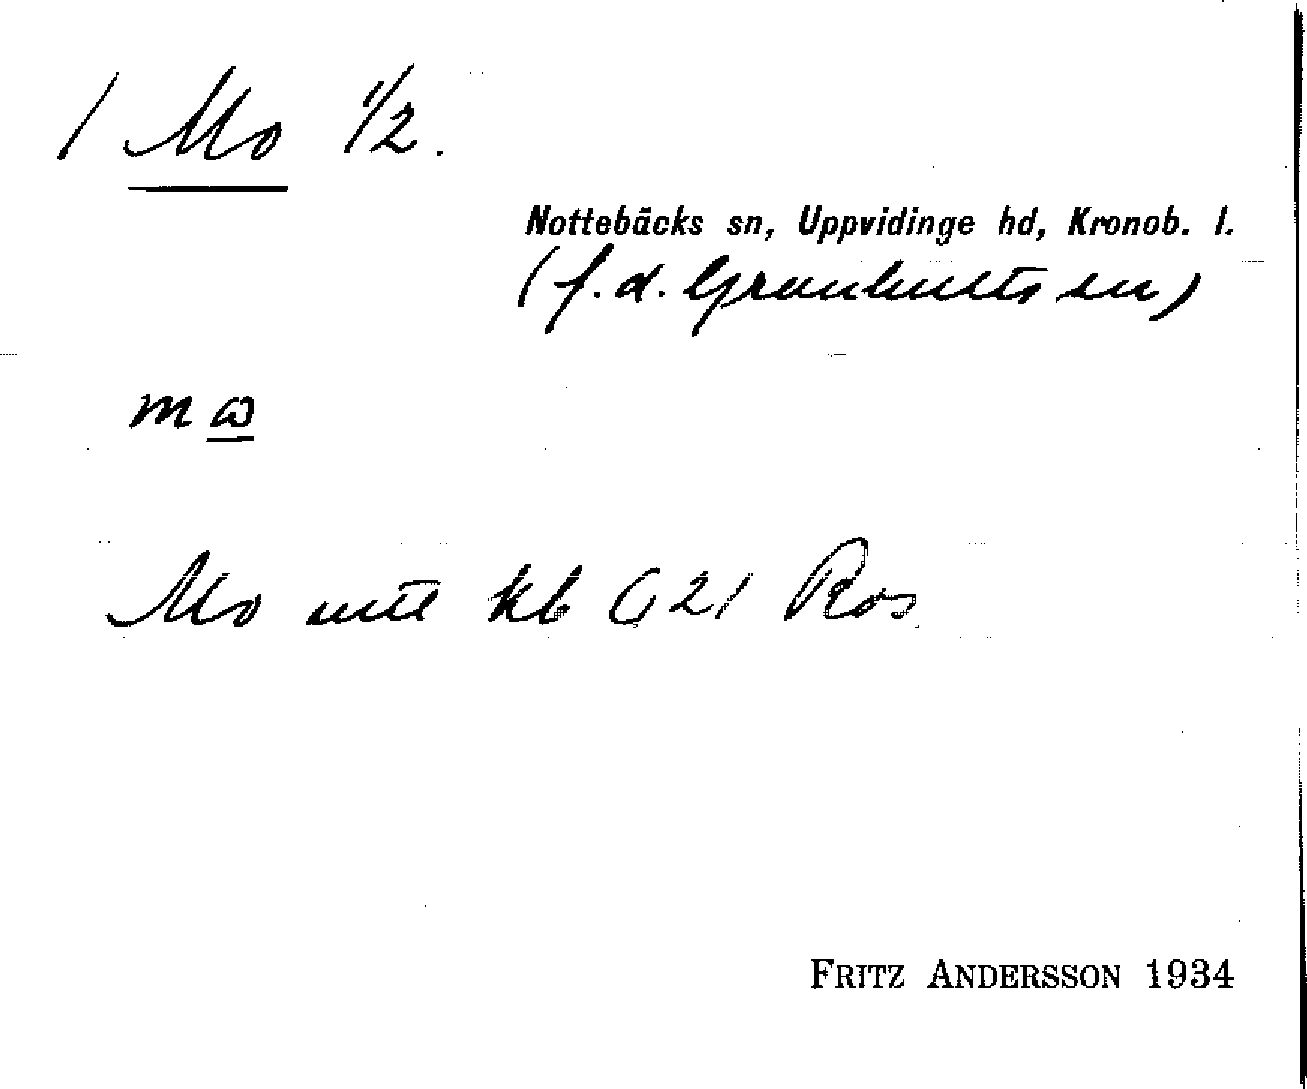 / Mo 1/2.
Nottebäcks sn, Uppvidinge hd, Kronob. l.
(f.d. Granhults sn)
m ꞷ
Mo uté kb G 21 Ros
FRITZ ANDERSSON 1934